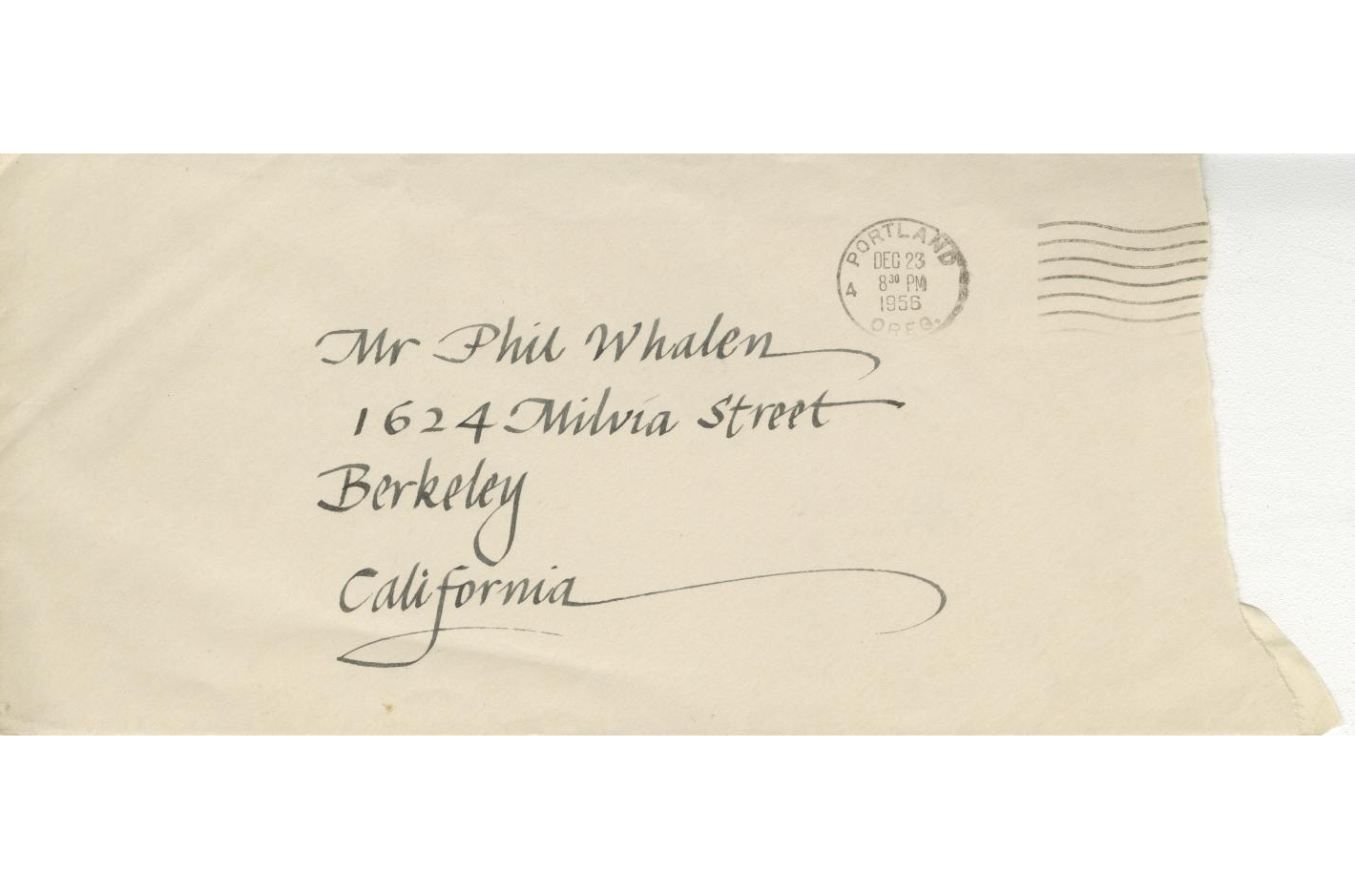 PORTLAND
DEC 23
8³⁰ PM
1956
4
OREG.
Mr Phil Whalen
1624 Milvia Street
Berkeley
California